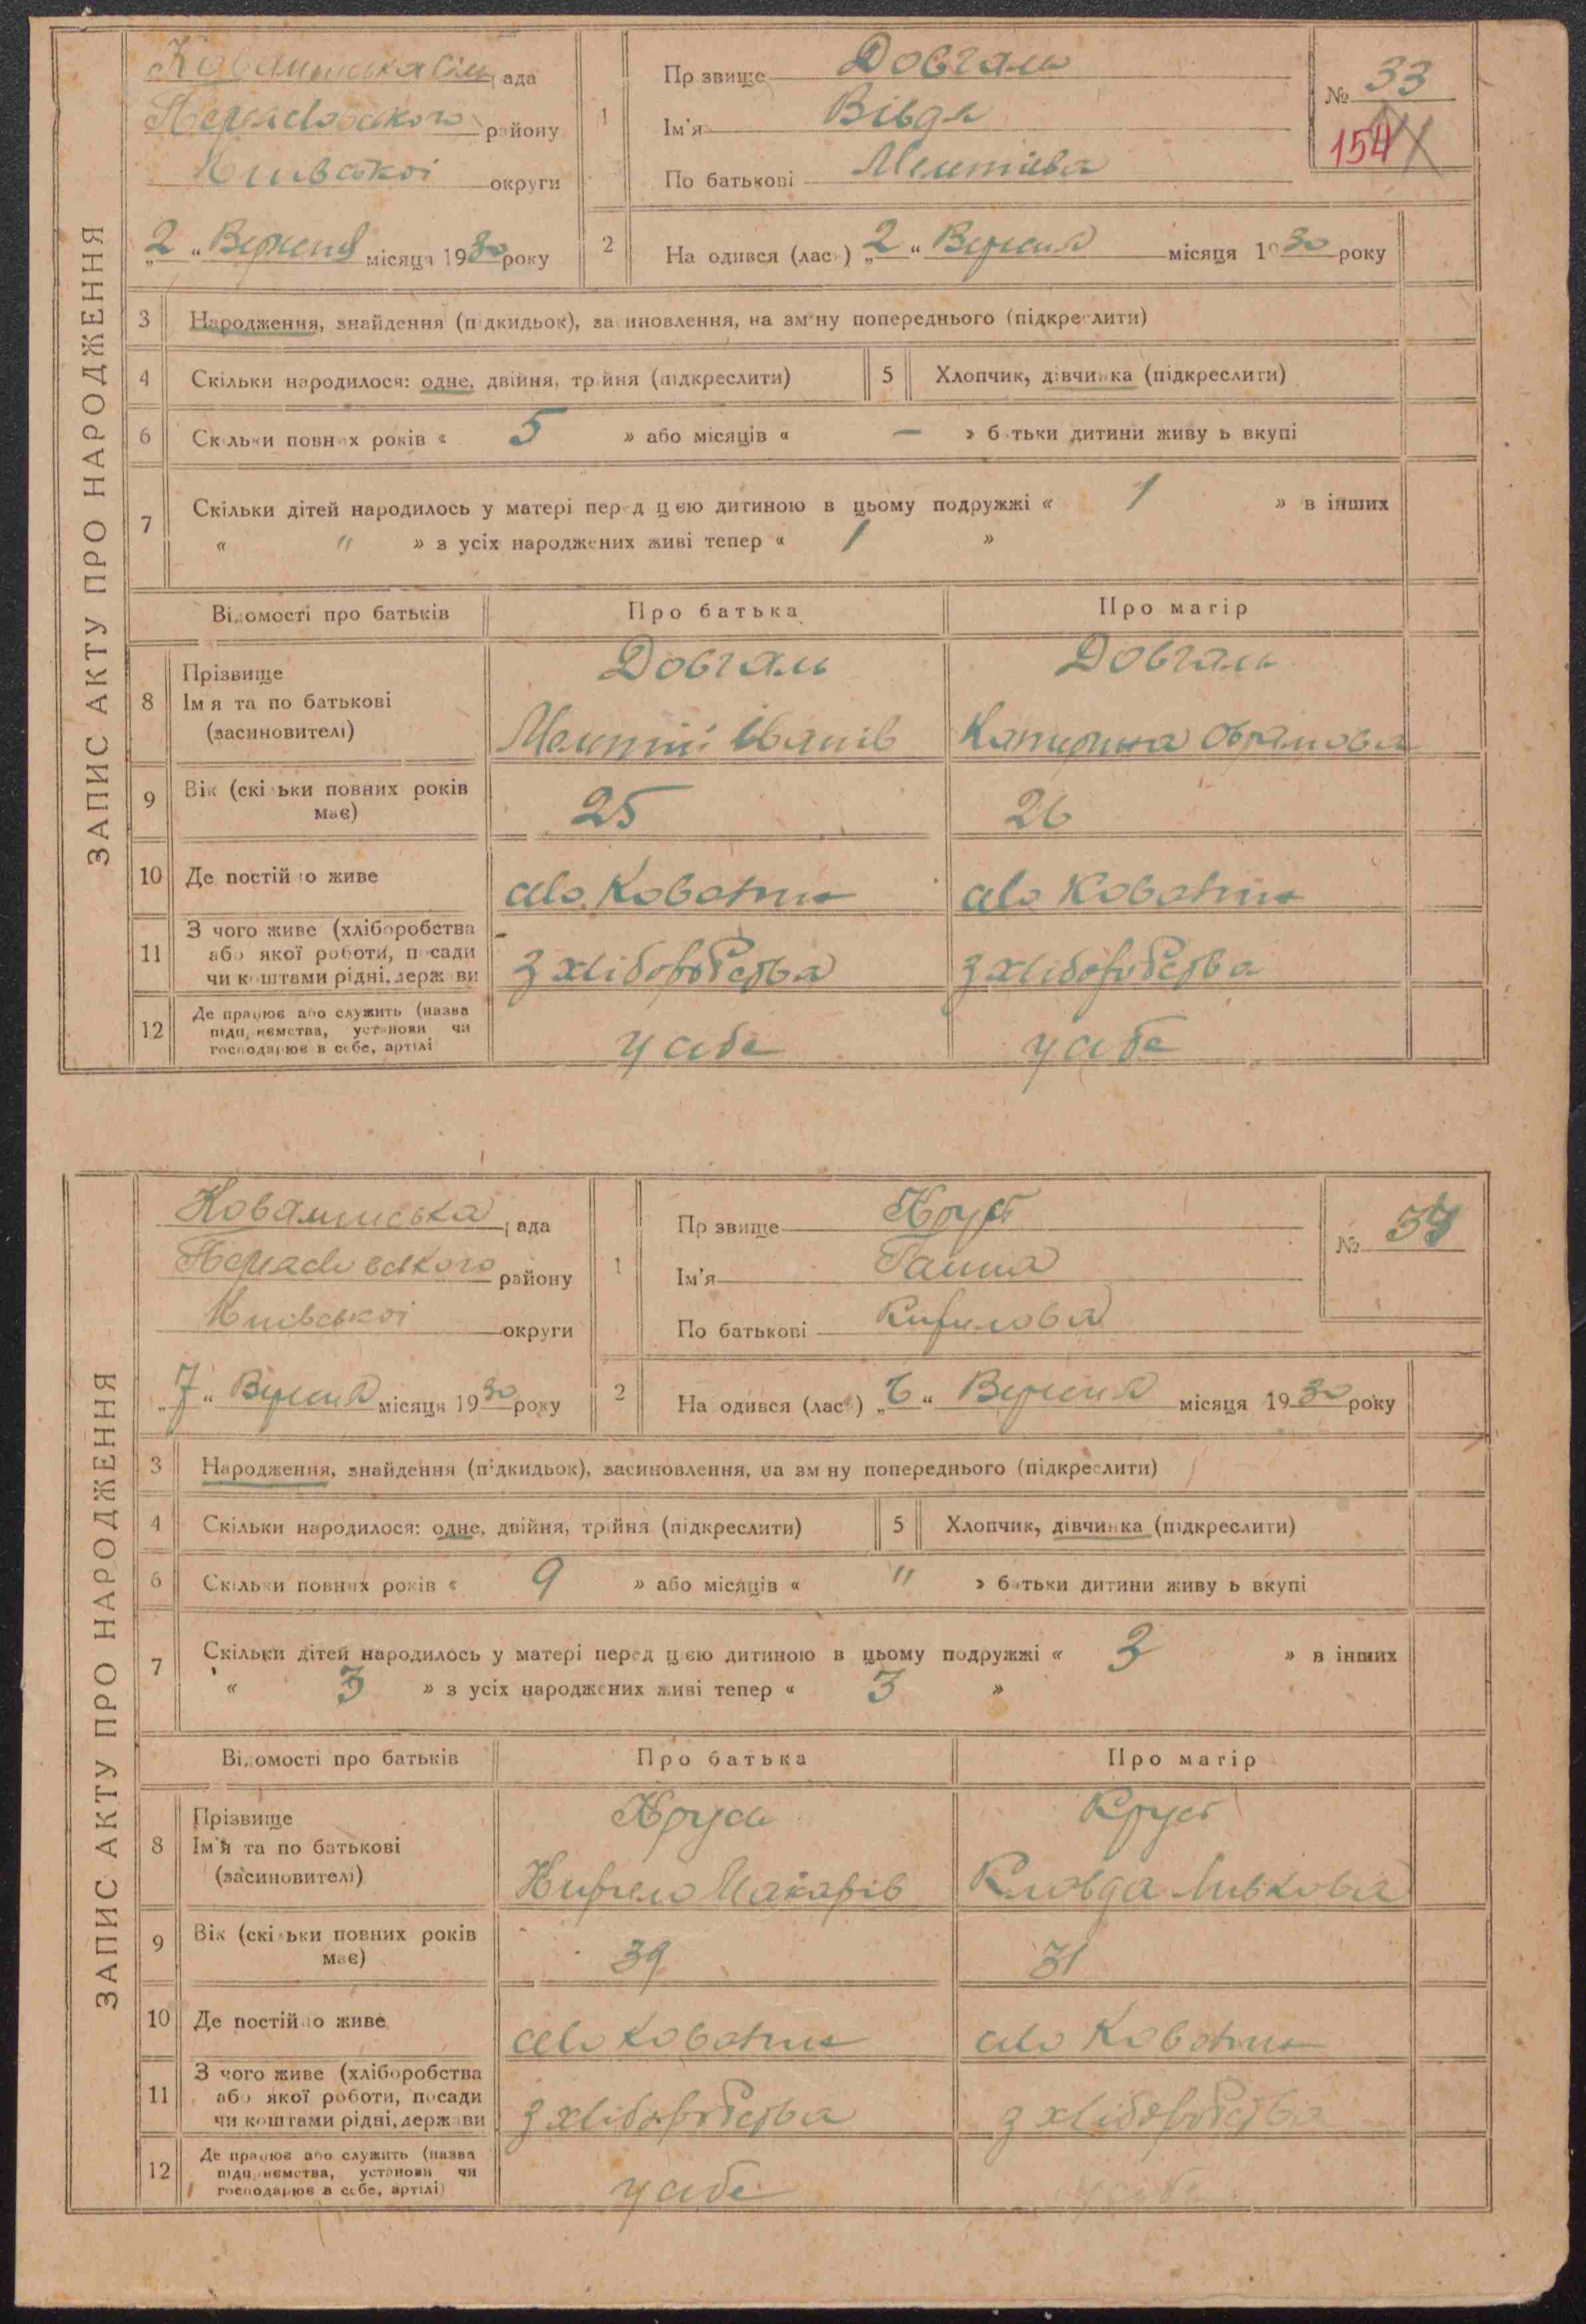 ЗАПИС АКТУ ПРО НАРОДЖЕННЯ
рада
району
Київської округи
„2“ Вересня місяця 1930 року
1
Прізвище Довгаль
Ім'я Вівдя
По батькові
№ 33
154
2
Народився (лась) „2“ Вересня місяця 1930 року
3 Народження, знайдення (підкидьок), засиновлення, на зміну попереднього (підкреслити)
4 Скільки народилося: одне, двійня, трійня (підкреслити)
5 Хлопчик, дівчинка (підкреслити)
6 Скільки повних років « 5 » або місяців « — » батьки дитини живуть вкупі
7 Скільки дітей народилось у матері перед цією дитиною в цьому подружжі « 1 » в інших
« " » з усіх народжених живі тепер « 1 »
Відомості про батьків Про батька Про матір
8 Прізвище
Ім я та по батькові
(засиновителі)
Довгаль
Мелетій Іванів
Довгаль
Катерина
9 Вік (скільки повних років
має)
25 26
10 Де постійно живе
село село
11 З чого живе (хліборобства
або якої роботи, посади
чи коштами рідні, держави
з хліборобства з хліборобства
12 Де працює або служить (назва
підприємства, установи чи
господарює в себе, артілі
у себе у себе
ЗАПИС АКТУ ПРО НАРОДЖЕННЯ
рада
району
Київської округи
„7“ Вересня місяця 1930 року
1
Прізвище
Ім'я Ганна
По батькові Кирилова
№ 34
2
Народився (лась) „6“ Вересня місяця 1930 року
3 Народження, знайдення (підкидьок), засиновлення, на зміну попереднього (підкреслити)
4 Скільки народилося: одне, двійня, трійня (підкреслити)
5 Хлопчик, дівчинка (підкреслити)
6 Скільки повних років « 9 » або місяців « " » батьки дитини живуть вкупі
7 Скільки дітей народилось у матері перед цією дитиною в цьому подружжі « 3 » в інших
« 3 » з усіх народжених живі тепер « 3 »
Відомості про батьків Про батька Про матір
8 Прізвище
Ім'я та по батькові
(засиновителі)
Кирило Макарів
9 Вік (скільки повних років
має)
39 31
10 Де постійно живе
село село
11 З чого живе (хліборобства
або якої роботи, посади
чи коштами рідні, держави
з хліборобства з хліборобства
12 Де працює або служить (назва
підприємства, установи чи
господарює в себе, артілі)
у себе у себе